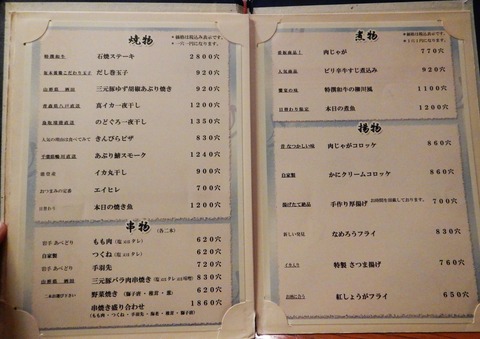 焼物
＊価格は税込み表示です。
＊一穴一円になります。
特撰和牛 石焼ステーキ 2800穴
だし巻玉子 920穴
山形県 三元豚ゆず胡椒あぶり焼き 920穴
青森県八戸直送 真イカ一夜干し 1200穴
のどぐろ一夜干し 1350穴
人気の理由は食べてみて きんぴらピザ 830穴
千葉県 あぶり鯖スモーク 1240穴
イカ丸干し 900穴
おつまみの定番 エイヒレ 700穴
日替わり 本日の焼き魚 1200穴
串物 (各二本)
岩手 あべどり もも肉(塩 又は タレ) 620穴
自家製 つくね(塩 又は タレ) 620穴
岩手 あべどり 手羽先 720穴
山形県 三元豚バラ肉串焼き(塩 又は タレ 又は 味噌) 830穴
二本お選び下さい 野菜焼き(獅子唐・椎茸・葱) 620穴
串焼き盛り合わせ 1860穴
(もも肉・つくね・手羽先・海老・椎茸・獅子唐)
煮物
＊価格は税込み表示です。
＊1穴1円になります。
肉じゃが 770穴
人気商品 ピリ辛牛すじ煮込み 920穴
特撰和牛の柳川風 1100穴
日替わり限定 本日の煮魚 1200穴
揚物
昔なつかしい味 肉じゃがコロッケ 860穴
自家製 かにクリームコロッケ 860穴
お時間を頂戴しております。
揚げたて絶品 手作り厚揚げ 700穴
新しい発見 なめろうフライ 830穴
イカ入り 特製 さつま揚げ 760穴
お肉に合う 紅しょうがフライ 650穴